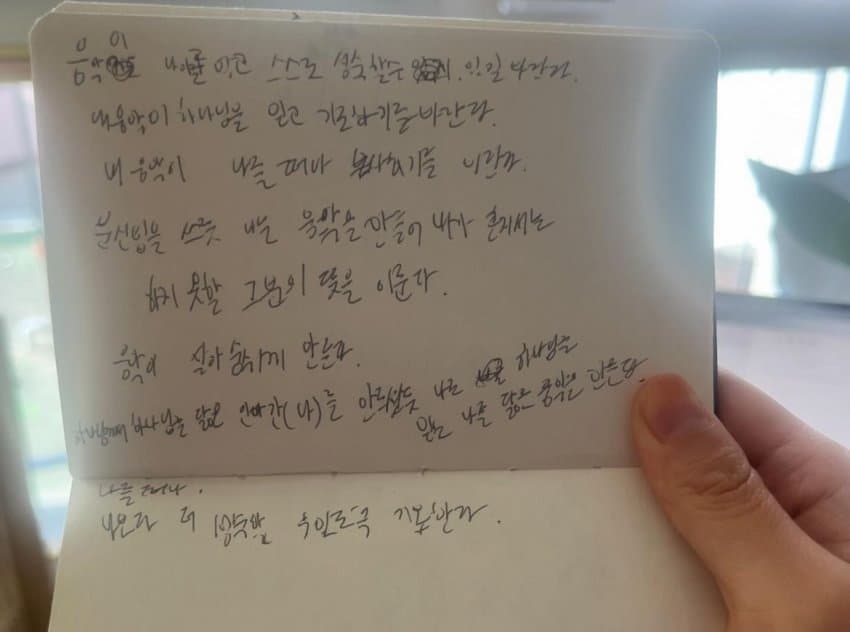 음악이 나를 잊고 스스로 성숙할수 있길 바란다.
내음악이 하나님을 믿고 기도하기를바란다.
내 음악이 나를 떠나 봉사하기를 바란다.
분신법을 쓰듯 나는 음악을 만들어 내가 혼자서는
하지 못할 그분의 뜻을 이룬다.
음악이 살아 숨쉬게 만든다.
하나님을 닮은 인간(나)를 만드셨듯 나도 하나님을
믿는 나를 닮은 음악을 만든다.
나를 떠나.
나보다 더 성숙할 수 있도록 기도한다.